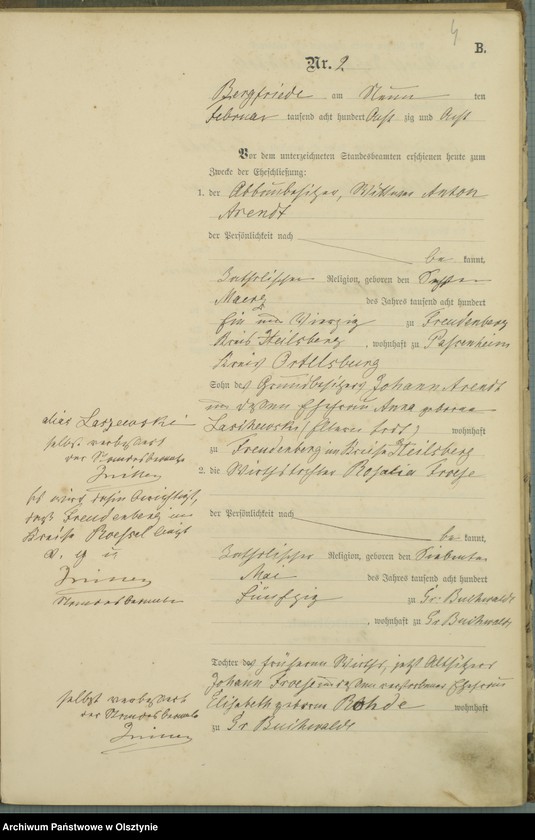 4
B.
Nr. 2
Bergfriede am Neun ten
Februar tausend acht hundert Acht zig und Acht
Vor dem unterzeichneten Standesbeamten erschienen heute zum
Zwecke der Eheschließung:
1. der Abbaubesitzer, Wittwer Anton
Arendt
der Persönlichkeit nach
be kannt,
katholischer Religion, geboren den
Maerz des Jahres tausend acht hundert
Ein und Vierzig zu Freudenberg
Kreis Heilsberg, wohnhaft zu Passenheim
Kreis Ortelsburg
Sohn des Grundbesitzers Johann Arendt
und dessen Ehefrau Anna geborene
(Eltern todt) wohnhaft
zu Freudenberg im Kreise Heilsberg
2. die Wirthstochter Rosalia Froese
der Persönlichkeit nach
be kannt,
katholischer Religion, geboren den Siebenten
Mai des Jahres tausend acht hundert
Fünfzig zu Gr. Buchwalde
, wohnhaft zu Gr Buchwalde
Tochter des früheren Wirths, jetzt Altsitzers
Johann Froese und dessen verstorbenen Ehefrau
Elisabeth geborene Rohde wohnhaft
zu Gr Buchwalde
alias Laszewski
selbst verbessert
der Standesbeamte
Es wird dahin berichtigt,
daß Freudenberg im
Kreise Roessel liegt
v. g u
Standesbeamte
selbst verbessert
der Standesbeamte
Archiwum Państwowe w Olsztynie